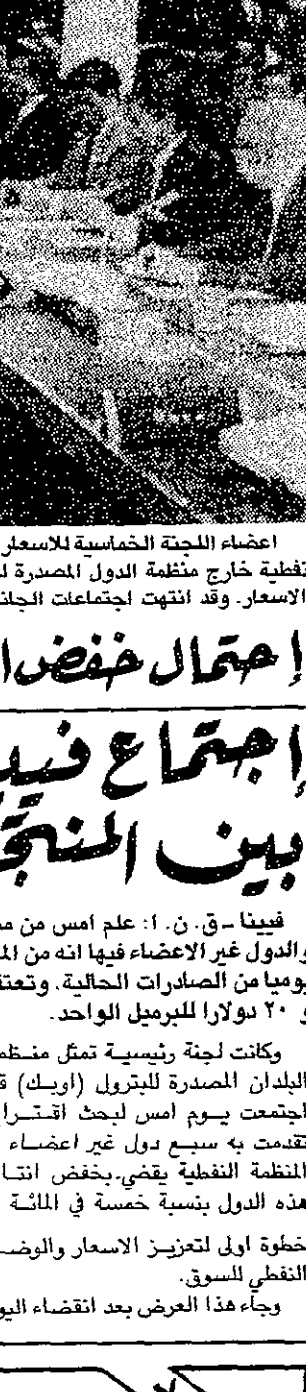 اعضاء اللجنة الخماسية للاسعار
نفطية خارج منظمة الدول المصدرة
الاسعار. وقد انتهت اجتماعات
إحتمال خفض
إجتماع
بين
فيينا - ق. ن. ا: علم امس من
والدول غير الاعضاء فيها انه من
يوميا من الصادرات الحالية.
و ٢٠ دولارا للبرميل الواحد.
وكانت لجنة رئيسية تمثل
البلدان المصدرة للبترول (اوبك)
اجتمعت يوم امس لبحث
تقدمت به سبع دول غير اعضاء
المنظمة النفطية يقضي بخفض
هذه الدول بنسبة خمسة في المائة
خطوة اولى لتعزيز الاسعار
النفطي للسوق.
وجاء هذا العرض بعد انقضاء